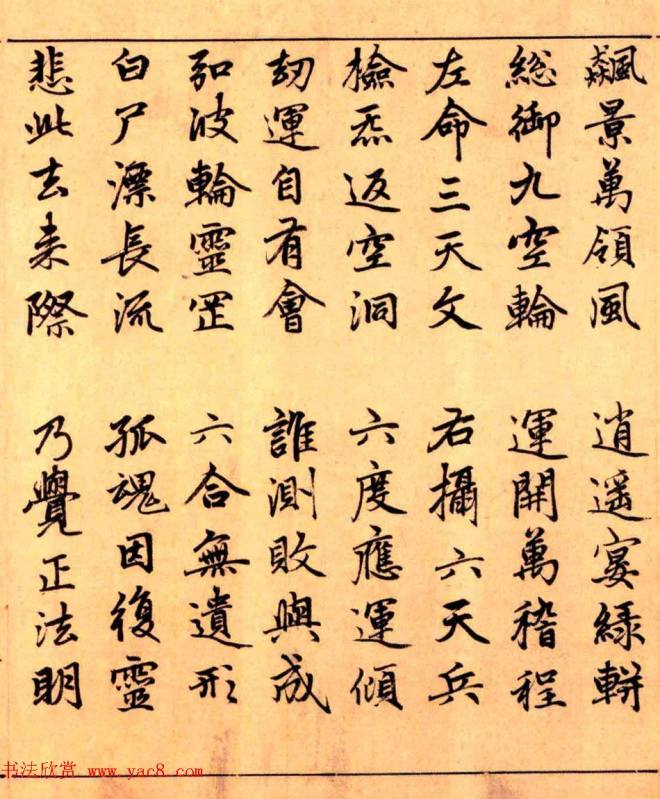 飆景萬領風 逍遥宴緑軿
総御九空輪 運開萬稽程
左命三天文 右攝六天兵
檢炁返空洞 六度應運傾
刧運自有會 誰測敗與成
弘波輪靈罡 六合無遺形
白尸漂長流 孤魂因復靈
悲此去来際 乃覺正法明
书法欣赏 www.yac8.com